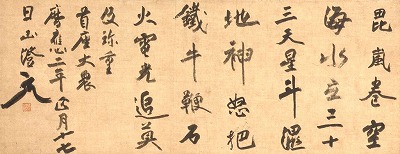 毘嵐巻空
海水立三十
三天星斗濕
地神怒把
鐵牛鞭石
火電光追莫
及珎重
首座大衆
暦應二年正月十七
日 澄